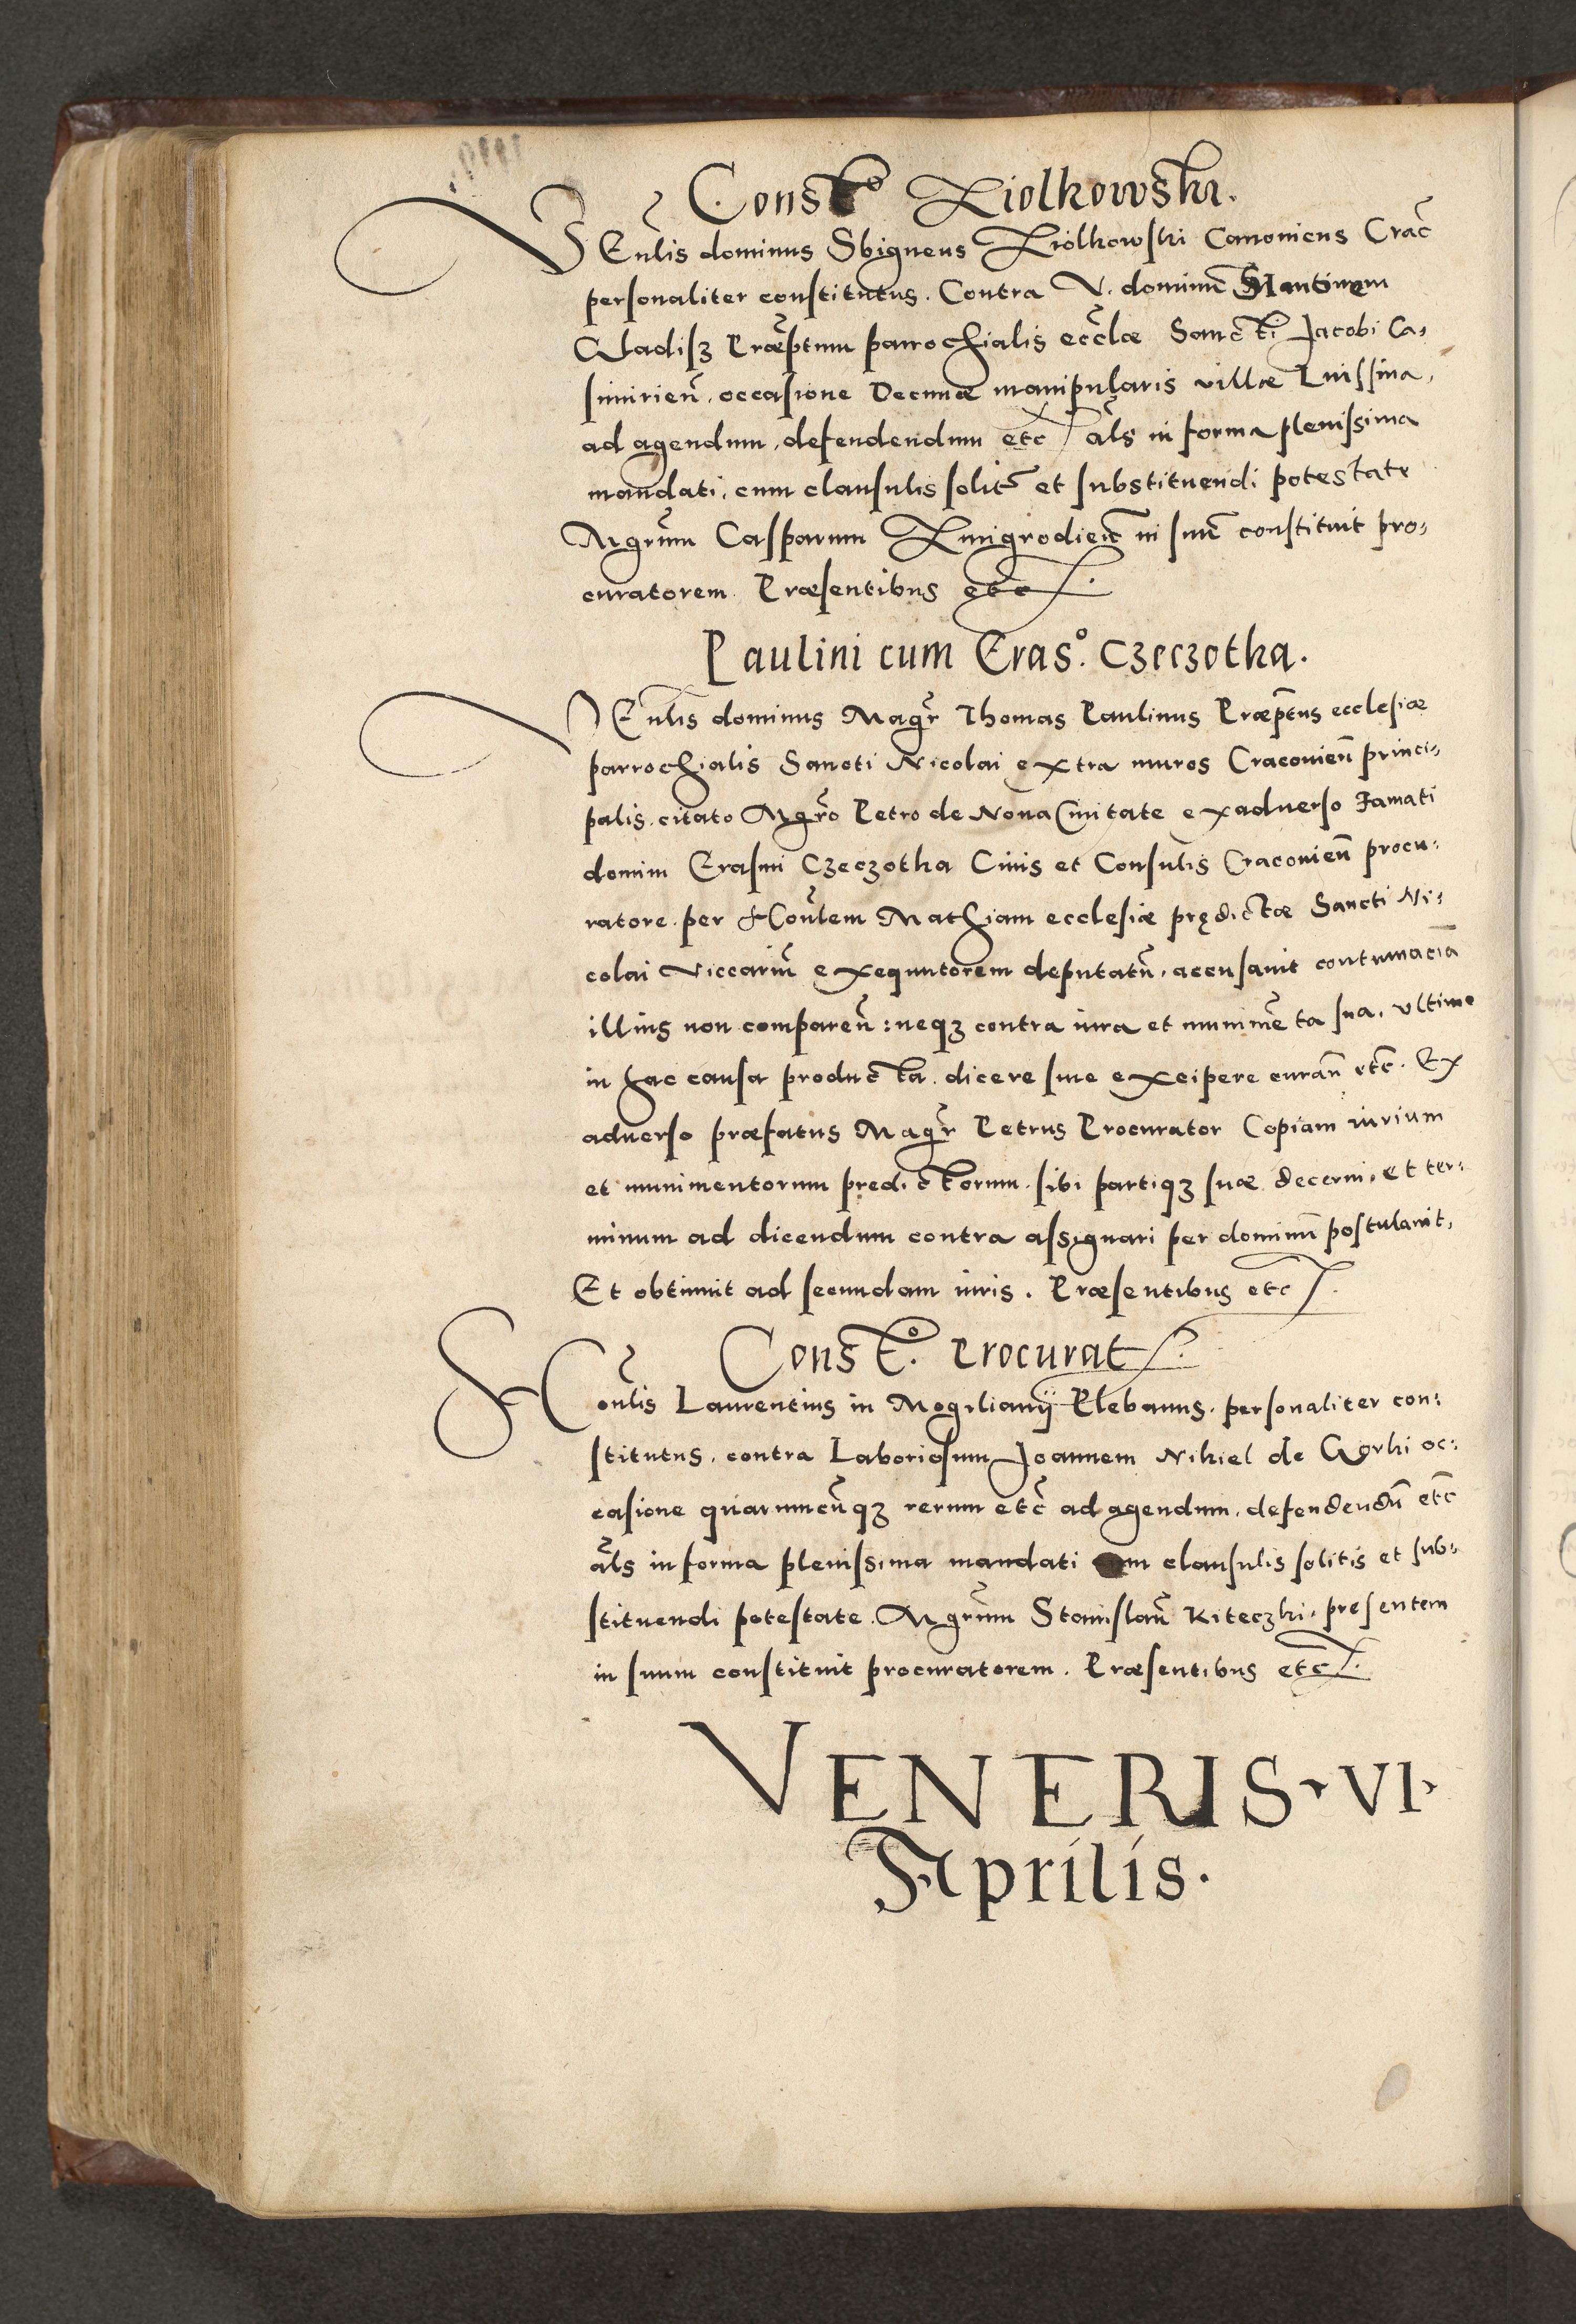 Const° Ziolkowski.
VEnłis dominus Sbigneus Ziolkowski Canonicus Crac̃
personaliter constitutus. Contra V. dominũ Martinum
Gladisz Præptum parrochialis ecclæ Sancti Jacobi Ca,
simirien̄. occasione Decimæ manipularis villæ
ad agendum, defendendum etc als in forma plenissima
mandati, cum clausulis solit̃ et substituendi potestate
Mgrum Casparum Zmigrodien̄ in suũ constituit pro,
curatorem. Præsentibus etc.
Paulini cum Eras°. Czeczotha.
VEnłis dominus Magr̃ Thomas Paulinus Præptus ecclesiæ
parrochialis Sancti Nicolai extra muros Cracovien̄ princi,
palis. citato Mgr̃o Petro de Nova Civitate ex adverso Famati
domini Erasmi Czeczotha Civis et Consulis Cracovien̄ procu,
ratore. per Honłem Mathiam ecclesiæ prędictæ Sancti Ni,
colai Viccariũ exequutorem deputatũ, accusavit contumaciã
illius non comparen̄: neqz contra iura et munimẽta sua, ultimo
in hac causa producta. dicere sive excipere curan̄ etc̃. Ex
adverso præfatus Magr̃ Petrus Procurator Copiam iurium
et munimentorum predictorum. sibi partiqz suæ decerni, et ter,
minum ad dicendum contra assignari per dominũ postulavit,
Et obtinuit ad secundam iuris. Præsentibus etc.
Const°. Procurat.
Honłis Laurentius in Mogilianij Plebanus. personaliter con,
stitutus, contra Laboriosum Joannem Nikiel de Gorki oc,
casione quarumcũqz rerum etc̃ ad agendum, defendendũ etc̃
als in forma plenissima mandati cum clausulis solitis et sub,
stituendi potestate. Mgrum Stanislaũ Kiteczki, presentem
in suum constituit procuratorem. Præsentibus etc.
VENERIS. VI.
Aprilis.